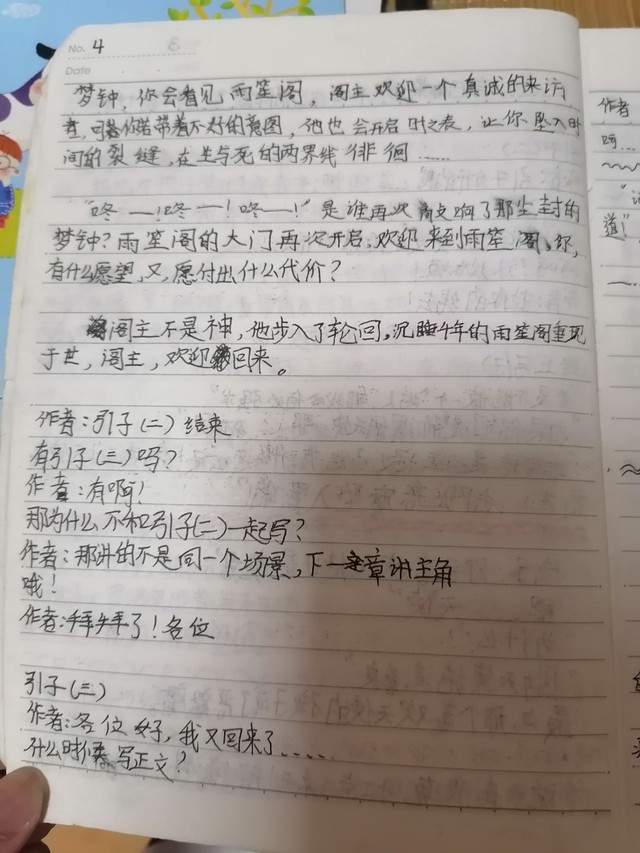 No. 4
Date
梦钟,你会看见雨笙阁,阁主欢迎一个真诚的来访
者,可若你若带着不好的意图,他也会开启时之表,让你坠入时
间的裂缝,在生与死的两界线徘徊……
“咚—!咚—!咚—!”是谁再次敲响了那尘封的
梦钟?雨笙阁的大门再次开启,欢迎来到雨笙阁,你,
有什么愿望,又,愿付出什么代价?
阁主不是神,他步入了轮回,沉睡千年的雨笙阁重现
于世,阁主,欢迎回来。
作者:引子(二)结束
有引子(三)吗?
作者:有啊!
那为什么不和引子(二)一起写?
作者:那讲的不是同一个场景,下一章讲主角
哦!
作者:拜拜了!各位
引子(三)
作者:各位好,我又回来了.....
什么时候写正文?
作者
啊…
道!